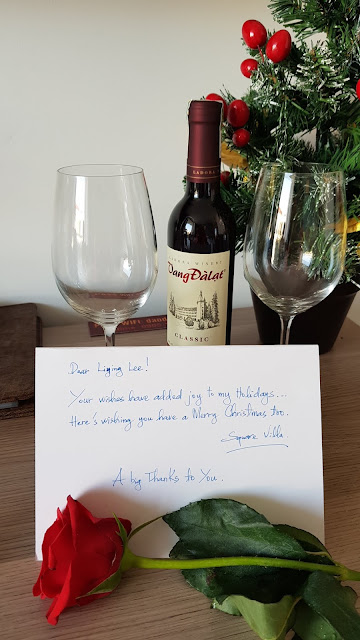 LADORA
LADORA WINERY
VangĐàlạt
CLASSIC
WIFI
Dear Liging Lee!
Your wishes have added joy to my Holidays...
Here's wishing you have a Merry Christmas, too.
Square Villa.
A big Thanks to You.